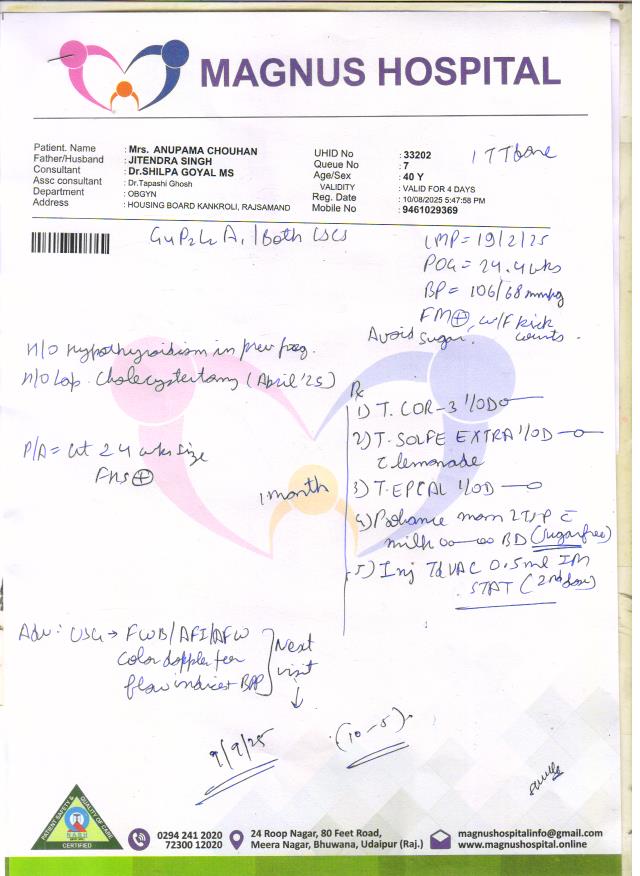 MAGNUS HOSPITAL
Patient. Name : Mrs. ANUPAMA CHOUHAN
Father/Husband : JITENDRA SINGH
Consultant : Dr.SHILPA GOYAL MS
Assc consultant : Dr.Tapashi Ghosh
Department : OBGYN
Address : HOUSING BOARD KANKROLI, RAJSAMAND
UHID No : 33202
Queue No : 7
Age/Sex : 40 Y
VALIDITY : VALID FOR 4 DAYS
Reg. Date : 10/08/2025 5:47:58 PM
Mobile No : 9461029369
1 TT done
G4P2L2A1 / Both LSCS
LMP = 19/2/25
POG = 24.4 wks
BP = 106/68 mmHg
FM ⊕, w/f kick counts.
Avoid sugar.
H/O Hypothyroidism in prev preg.
H/O Lap. Cholecystectomy (April '25)
P/A = ut 24 wks size
FHS ⊕
1 month
Rx
1) T. COR-3 1/OD
2) T-SOLFE EXTRA 1/OD
c lemonade
3) T-EPCAL 1/OD
4) Prohance mom 2 TSP c
milk BD (sugarfree)
5) Inj TdVAC 0.5ml IM
STAT (2nd dose)
Adv: USG → FWB/AFI/AFW
color doppler for
flow indices + BPP
Next visit
9/9/25
(10-5)
PATIENT SAFETY & QUALITY OF CARE
NABH
CERTIFIED
0294 241 2020
72300 12020
24 Roop Nagar, 80 Feet Road,
Meera Nagar, Bhuwana, Udaipur (Raj.)
magnushospitalinfo@gmail.com
www.magnushospital.online